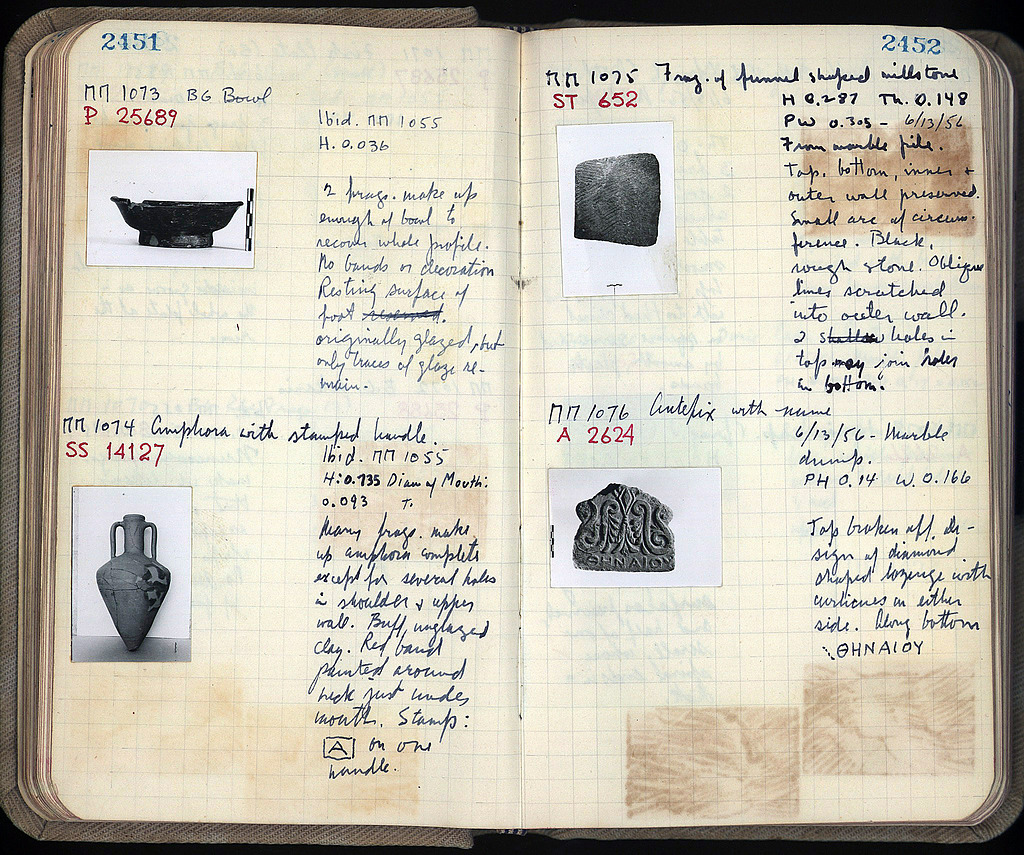 2451
ΠΠ 1073 BG Bowl
P 25689
Ibid. ΠΠ 1055
H. 0.036
2 frags. make up
enough of bowl to
recover whole profile.
No bands or decoration
Resting surface of
foot reserved.
originally glazed, but
only traces of glaze re-
main.
ΠΠ 1074 Amphora with stamped handle.
SS 14127
Ibid. ΠΠ 1055
H: 0.735 Diam of Mouth:
0.093 T.
Many frags. make
up amphora complete
except for several holes
in shoulder & upper
wall. Buff, unglazed
clay. Red band
painted around
neck just under
mouth. Stamp:
A on one
handle.
2452
ΠΠ 1075 Frag. of funnel shaped millstone
ST 652
H 0.287 Th. 0.148
PW 0.305 - 6/13/56
From marble pile.
Top, bottom, inner +
outer wall preserved.
Small arc of circum-
ference. Black,
rough stone. Oblique
lines scratched
into outer wall.
2 shallow holes in
top may join holes
in bottom.
ΠΠ 1076 Antefix with name
A 2624
6/13/56 - Marble
dump.
PH 0.14 W. 0.166
Top broken off. de-
sign of diamond
shaped lozenge with
curlicues on either
side. Along bottom
ΘΗΝΑΙΟΥ
ΘΗΝΑΙΟΥ